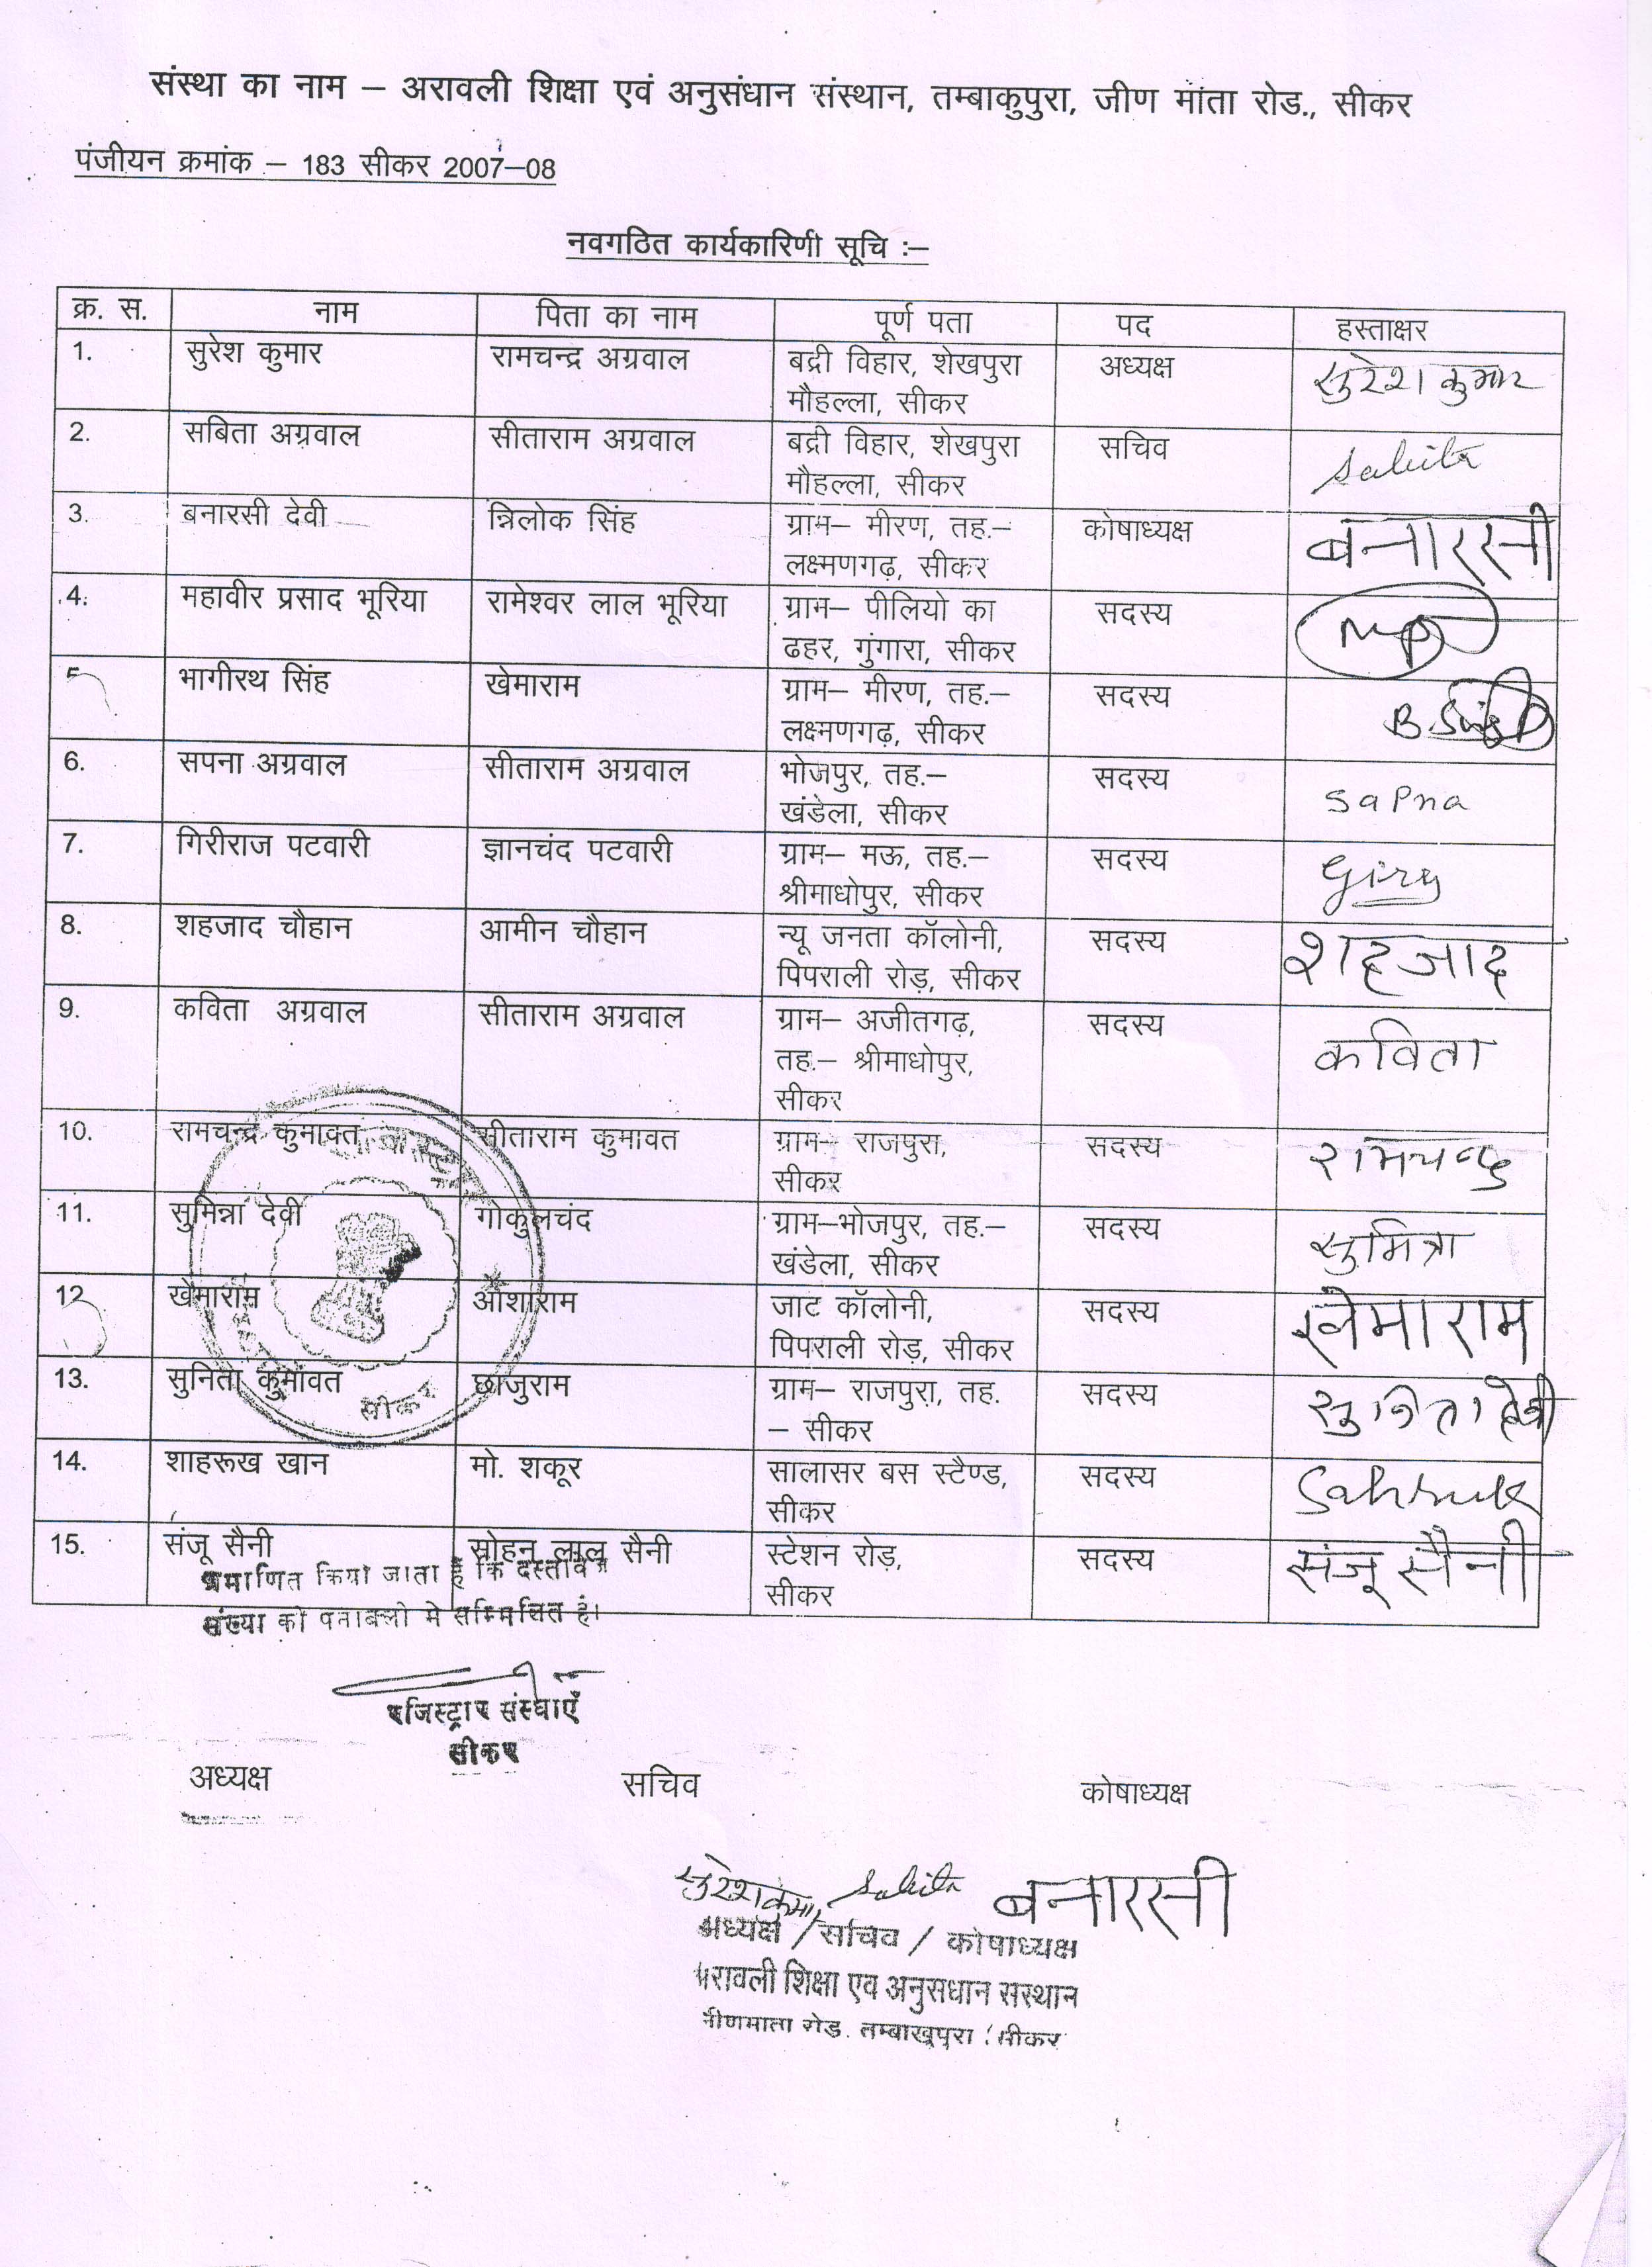 संस्था का नाम – अरावली शिक्षा एवं अनुसंधान संस्थान, तम्बाकुपुरा, जीण माता रोड., सीकर
पंजीयन क्रमांक – 183 सीकर 2007–08
नवगठित कार्यकारिणी सूचि :–
क्र. स. नाम पिता का नाम पूर्ण पता पद हस्ताक्षर
1. सुरेश कुमार रामचन्द्र अग्रवाल बद्री विहार, शेखपुरा अध्यक्ष सुरेश कुमार
मौहल्ला, सीकर
2. सबिता अग्रवाल सीताराम अग्रवाल बद्री विहार, शेखपुरा सचिव Sabita
मौहल्ला, सीकर
3. बनारसी देवी त्रिलोक सिंह ग्राम– मीरण, तह.– कोषाध्यक्ष बनारसी
लक्ष्मणगढ़, सीकर
4. महावीर प्रसाद भूरिया रामेश्वर लाल भूरिया ग्राम– पीलियो का सदस्य
ढहर, गुंगारा, सीकर
5 भागीरथ सिंह खेमाराम ग्राम– मीरण, तह.– सदस्य
लक्ष्मणगढ़, सीकर
6. सपना अग्रवाल सीताराम अग्रवाल भोजपुर, तह.– सदस्य Sapna
खंडेला, सीकर
7. गिरीराज पटवारी ज्ञानचंद पटवारी ग्राम– मऊ, तह.– सदस्य
श्रीमाधोपुर, सीकर
8. शहजाद चौहान आमीन चौहान न्यू जनता कॉलोनी, सदस्य शहजाद
पिपराली रोड़, सीकर
9. कविता अग्रवाल सीताराम अग्रवाल ग्राम– अजीतगढ़, सदस्य कविता
तह.– श्रीमाधोपुर,
सीकर
10. रामचन्द्र कुमावत सीताराम कुमावत ग्राम– राजपुरा, सदस्य रामचन्द्र
सीकर
11. सुमित्रा देवी गोकुलचंद ग्राम–भोजपुर, तह.– सदस्य सुमित्रा
खंडेला, सीकर
12 खेमाराम औशाराम जाट कॉलोनी, सदस्य खेमाराम
पिपराली रोड़, सीकर
13. सुनिता कुमावत छाजुराम ग्राम– राजपुरा, तह. सदस्य सुनिता देवी
– सीकर
सीकर
14. शाहरूख खान मो. शकूर सालासर बस स्टैण्ड, सदस्य
सीकर
15. संजू सैनी सोहन लाल सैनी स्टेशन रोड़, सदस्य संजू सैनी
सीकर
प्रमाणित किया जाता है कि दस्तावेज
संख्या की पत्रावली में सम्मिलित है।
रजिस्ट्रार संस्थाएँ
सीकर
अध्यक्ष सचिव कोषाध्यक्ष
सुरेश कुमार Sabita बनारसी
अध्यक्ष / सचिव / कोषाध्यक्ष
अरावली शिक्षा एव अनुसधान सस्थान
जीणमाता रोड. तम्बाखुपुरा सीकर